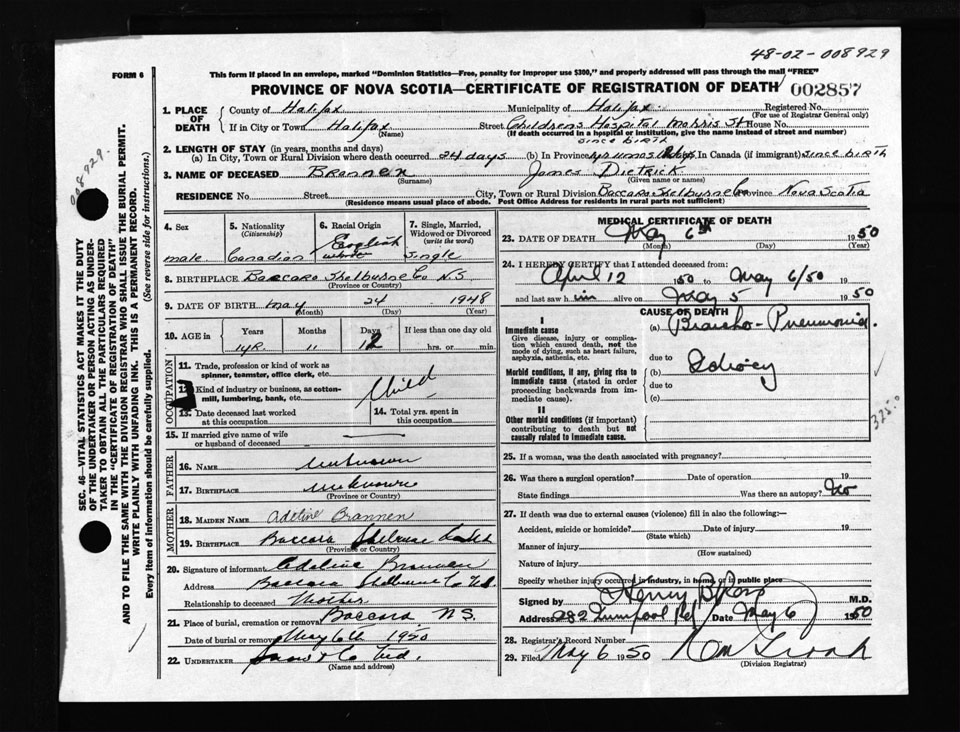 48-02-008929
FORM 6
This form if placed in an envelope, marked "Dominion Statistics—Free, penalty for improper use $300," and properly addressed will pass through the mail "FREE"
PROVINCE OF NOVA SCOTIA—CERTIFICATE OF REGISTRATION OF DEATH
002857
1. PLACE OF DEATH
County of Halifax Municipality of Halifax Registered No.
(For use of Registrar General only)
If in City or Town Halifax Street Childrens Hospital Morris St House No.
(Name) (If death occurred in a hospital or institution, give the name instead of street and number)
2. LENGTH OF STAY (in years, months and days) since birth
(a) In City, Town or Rural Division where death occurred 24 days (b) In Province In Canada (if immigrant) since birth
3. NAME OF DECEASED Brannen James Dietrick
(Surname) (Given name or names)
RESIDENCE No. Street City, Town or Rural Division Baccaro Shelburne Co Province Nova Scotia
(Residence means usual place of abode. Post Office Address for residents in rural parts not sufficient)
4. Sex
male
5. Nationality
(Citizenship)
Canadian
6. Racial Origin
English
white
7. Single, Married, Widowed or Divorced
(write the word)
Single
8. BIRTHPLACE Baccaro Shelburne Co N.S.
(Province or Country)
9. DATE OF BIRTH may 24 1948
(Month) (Day) (Year)
10. AGE in Years Months Days If less than one day old
1 YR. 11 12 hrs. or min.
OCCUPATION
11. Trade, profession or kind of work as spinner, teamster, office clerk, etc.
12. Kind of industry or business, as cotton-mill, lumbering, bank, etc. Child
13. Date deceased last worked at this occupation
14. Total yrs. spent in this occupation
15. If married give name of wife or husband of deceased
FATHER
16. NAME unknown
17. BIRTHPLACE unknown
(Province or Country)
MOTHER
18. MAIDEN NAME Adeline Brannen
19. BIRTHPLACE Baccaro
(Province or Country)
20. Signature of informant Adeline Brannen
Address Baccaro Shelburne Co N.S.
Relationship to deceased Mother
21. Place of burial, cremation or removal Baccaro N.S.
Date of burial or removal May 6th 1950
22. UNDERTAKER Snow & Co Ltd.
(Name and address)
MEDICAL CERTIFICATE OF DEATH
23. DATE OF DEATH May 6th 1950
(Month) (Day) (Year)
24. I HEREBY CERTIFY that I attended deceased from:
April 12 1950 to May 6/50
and last saw him alive on May 5 1950
CAUSE OF DEATH
I
Immediate cause
Give disease, injury or complication which caused death, not the mode of dying, such as heart failure, asphyxia, asthenia, etc.
(a) Broncho-Pneumonia.
due to
Morbid conditions, if any, giving rise to immediate cause (stated in order proceeding backwards from immediate cause).
(b) Idiocy
due to
(c)
II
Other morbid conditions (if important) contributing to death but not causally related to immediate cause.
3250
25. If a woman, was the death associated with pregnancy?
26. Was there a surgical operation? Date of operation 19
State findings Was there an autopsy? No
27. If death was due to external causes (violence) fill in also the following:—
Accident, suicide or homicide? Date of injury 19
(State which)
Manner of injury
(How sustained)
Nature of injury
Specify whether injury occurred in industry, in home, or in public place
Signed by Henry B Ross M.D.
Address 282 Quinpool Rd Date May 6 1950
28. Registrar's Record Number
29. Filed May 6 1950
(Division Registrar)
SEC. 46—VITAL STATISTICS ACT MAKES IT THE DUTY
OF THE UNDERTAKER OR PERSON ACTING AS UNDER-
TAKER TO OBTAIN ALL THE PARTICULARS REQUIRED
IN THE "CERTIFICATE OF REGISTRATION OF DEATH"
AND TO FILE THE SAME WITH THE DIVISION REGISTRAR WHO SHALL ISSUE THE BURIAL PERMIT.
WRITE PLAINLY WITH UNFADING INK. THIS IS A PERMANENT RECORD.
Every item of information should be carefully supplied. (See reverse side for instructions.)
008929.